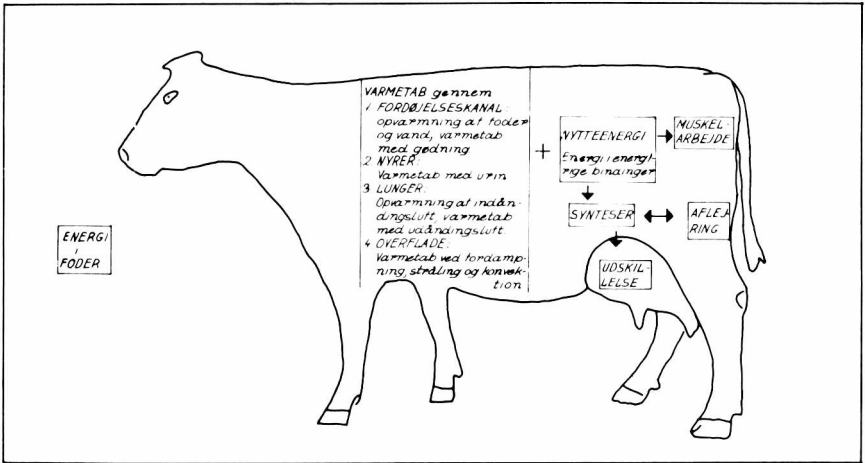 ENERGI
I
FODER
VARMETAB gennem
1 FORDØJELSESKANAL:
opvarmning af foder
og vand, varmetab
med gødning
2 NYRER:
Varmetab med urin
3 LUNGER:
Opvarmning af indån-
dingsluft, varmetab
med udåndingsluft.
4 OVERFLADE:
Varmetab ved fordamp-
ning, stråling og konvek-
tion
+
NYTTEENERGI
Energi i energi-
rige bindinger
MUSKEL-
ARBEJDE
SYNTESER
AFLEJ-
RING
UDSKIL-
LELSE